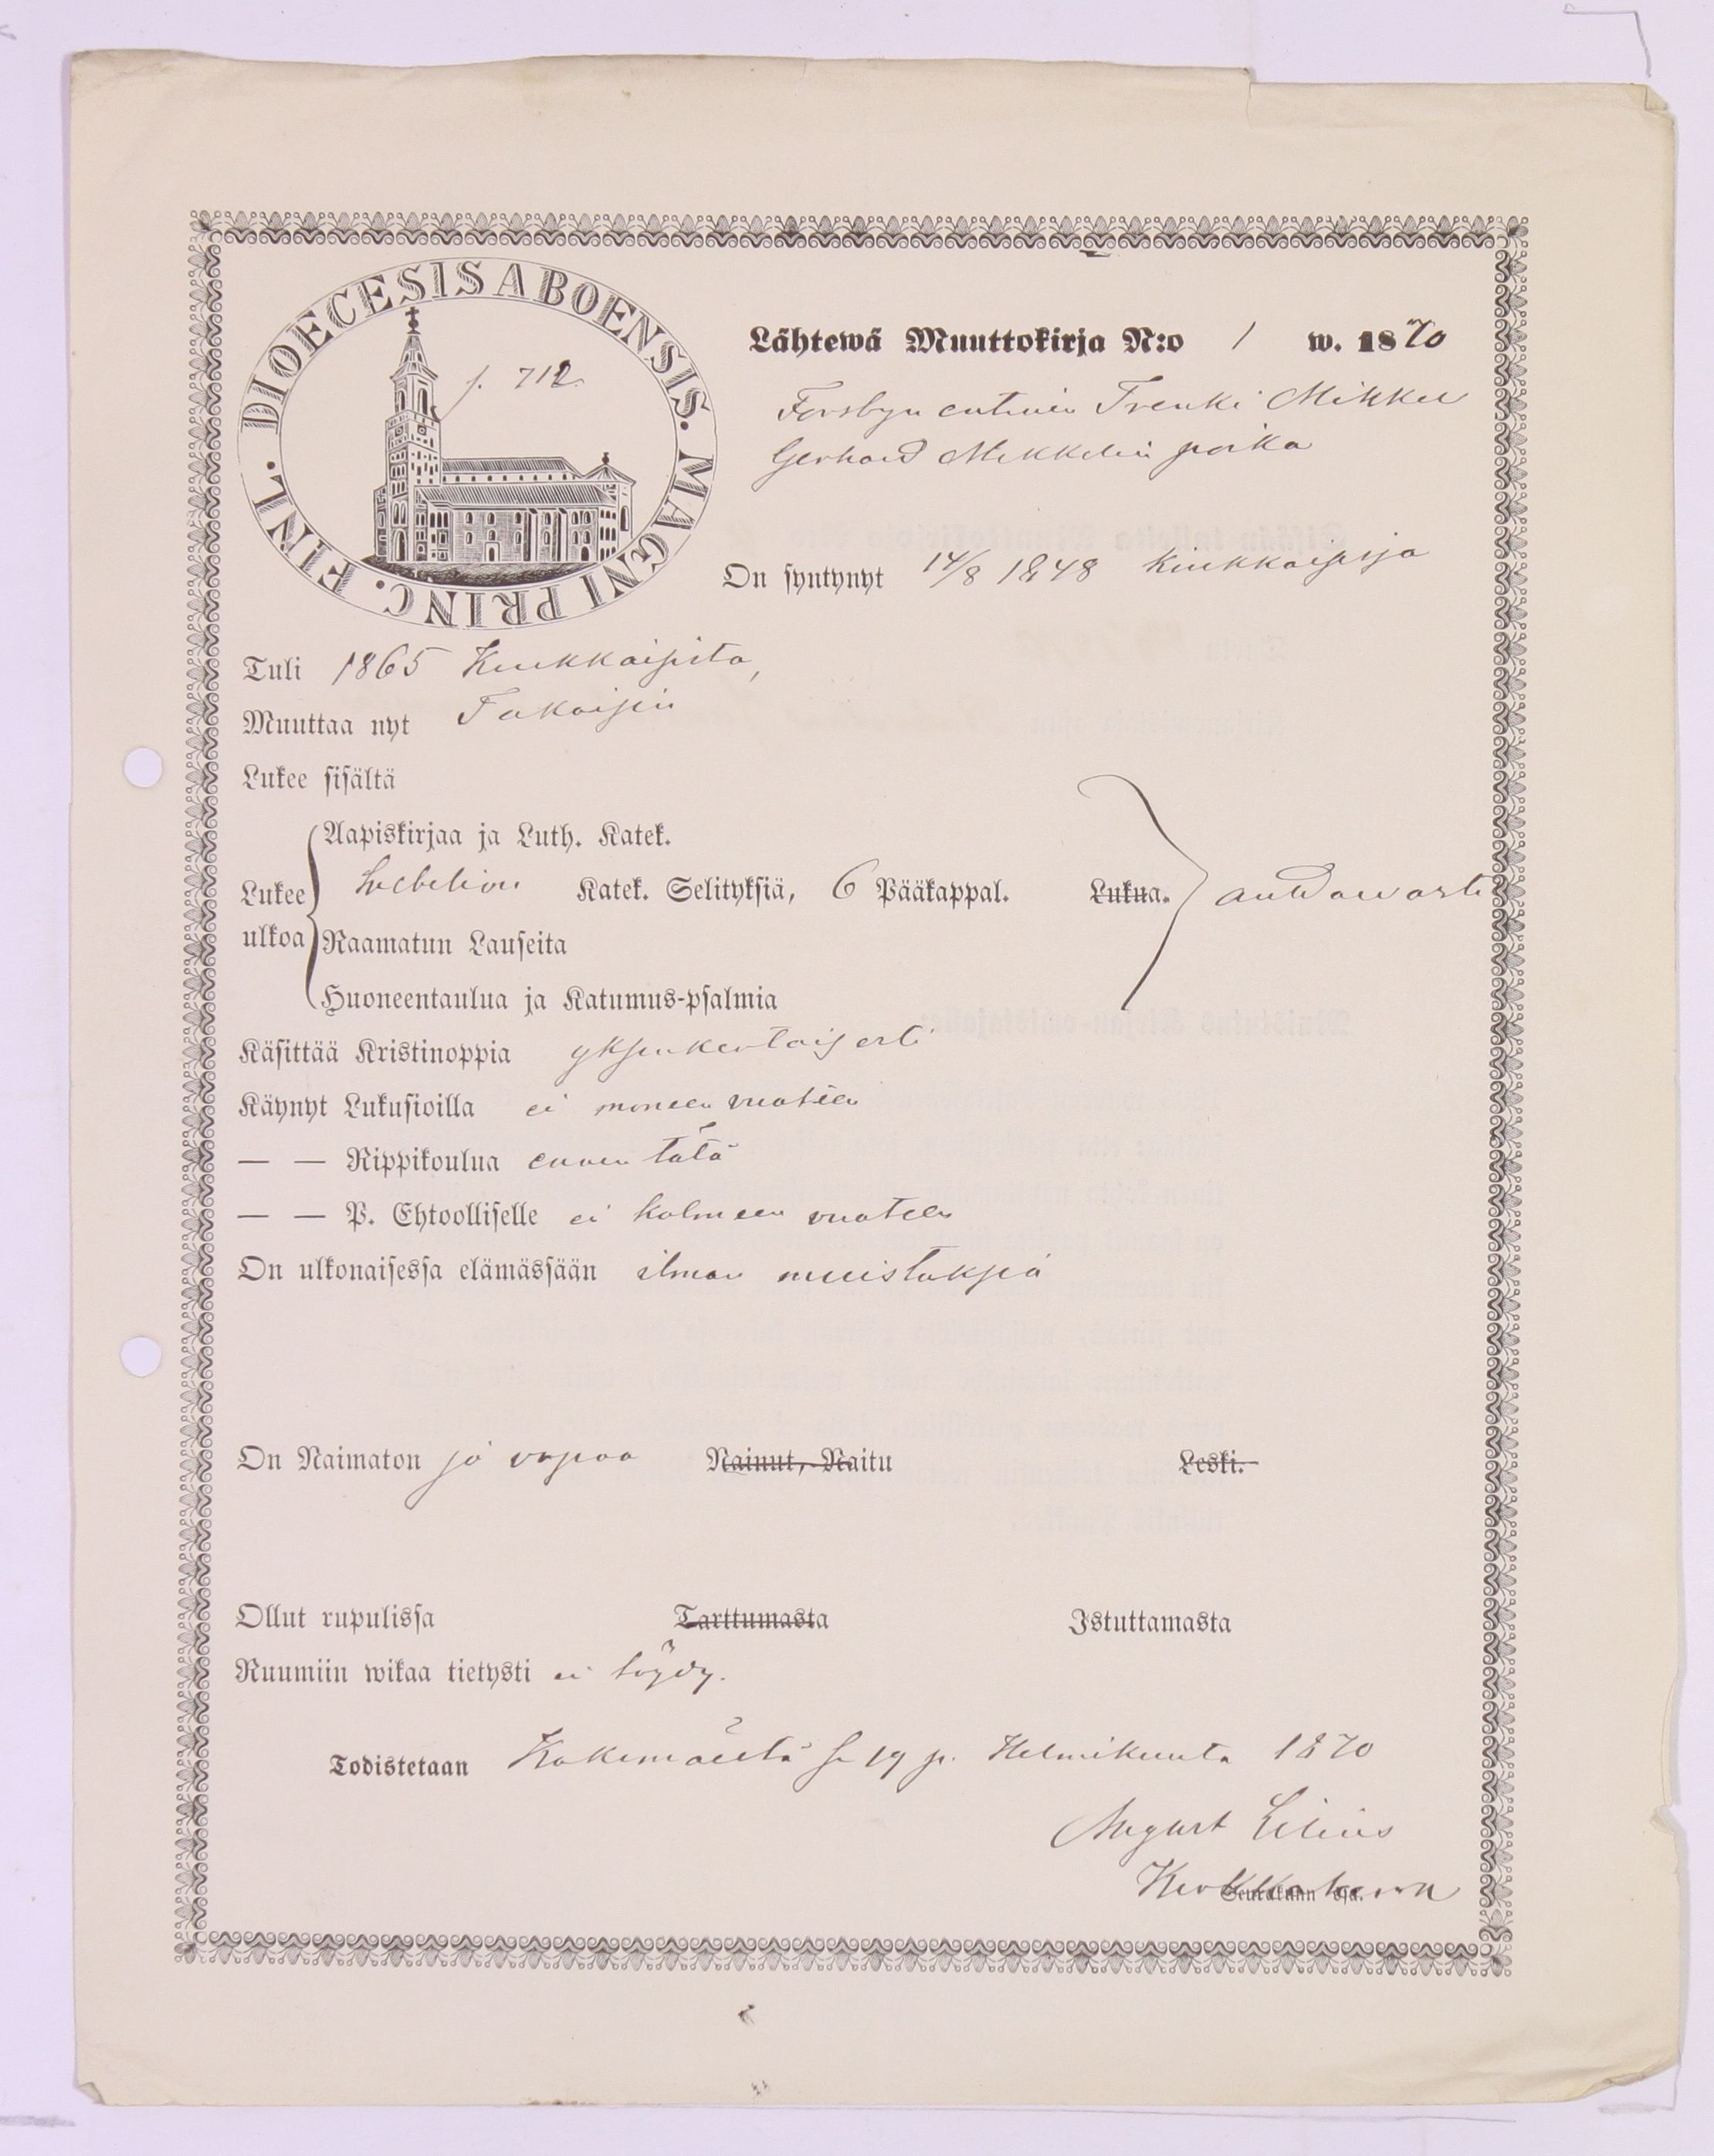 DIOECESIS ABOENSIS. MAGNI PRINC. FINL.
f. 712.
Lähtewä Muuttokirja N:o 1 w. 1870
Forsbyn entinen Trenki Mikkel
Gerhard Mikkelin poika
On syntynyt 14/8 1848
Tuli 1865
Muuttaa nyt
Lukee sisältä
Aapiskirjaa ja Luth. Katek.
Lukee ulkoa Katek. Selityksiä, 6 Pääkappal. Lukua. auttawasti
Raamatun Lauseita
Huoneentaulua ja Katumus-psalmia
Käsittää Kristinoppia yksinkertaisesti
Käynyt Lukusioilla ei moneen vuoteen
— — Rippikoulua ennen tätä
— — P. Ehtoolliselle ei kolmeen vuoteen
On ulkonaisessa elämässään ilman muistutuksia
On Naimaton ja vapaa Nainut, Naitu Leski.
Ollut rupulissa Tarttumasta Istuttamasta
Ruumiin wikaa tietysti ei löydy.
Todistetaan Kokemäeltä se 19 p. Helmikuuta 1870
August Lilius
Kirkkoherra
Seurakunn